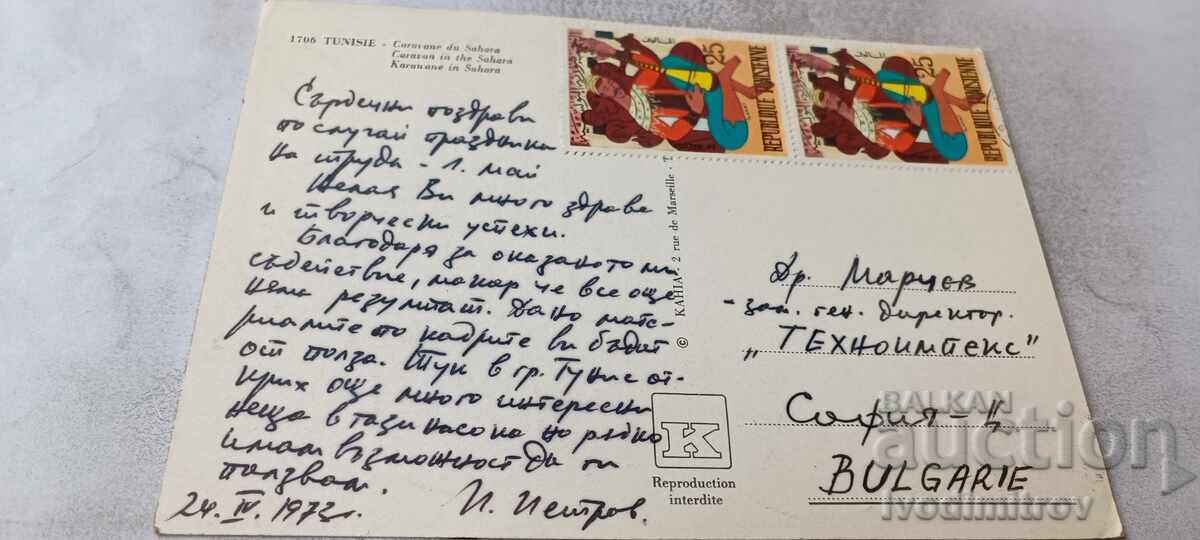 1706 TUNISIE - Caravane du Sahara
Caravan in the Sahara
Karawane in Sahara
Сърдечни поздрави
по случай празника
на труда - 1. май
Желая Ви много здраве
и творчески успехи.
Благодаря за оказаното ми
съдействие, макар че все още
няма резултат. Дано мате-
риалите по кадрите ви бъдат
от полза. Тук в гр. Тунис от-
крих още много интересни
неща в тази насока но рядко
имам възможност да ги
ползвам.
24. IV. 1973г. И. Петров.
25
REPUBLIQUE TUNISIENNE
25
REPUBLIQUE TUNISIENNE
© KAHIA - 2 rue de Marseille - T
K
Reproduction
interdite
Др. Марчев
- зам. ген. директор.
"ТЕХНОИМПЕКС"
София - Ц
BULGARIE
BALKAN
auction
ivodimitrov